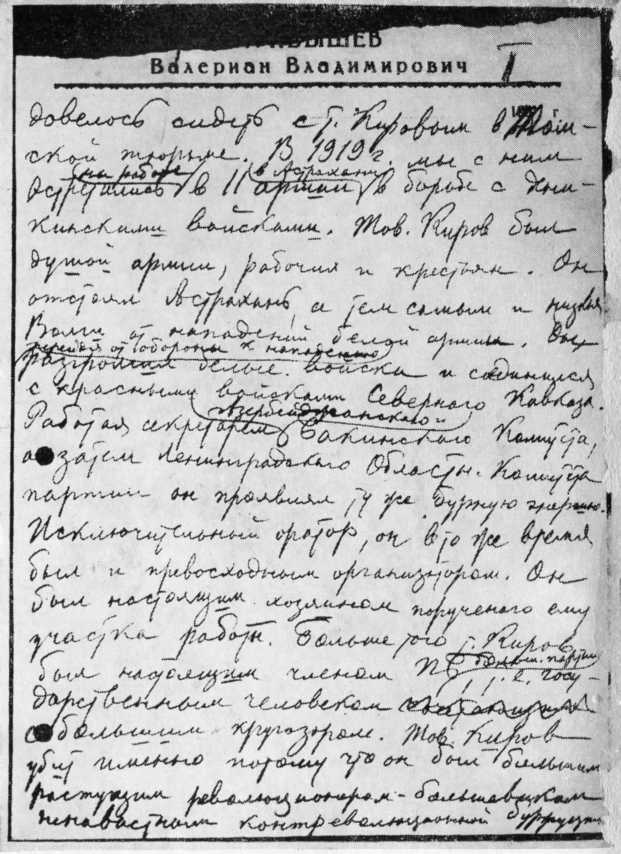 КУЙБЫШЕВ
Валериан Владимирович
II
довелось сидеть с т. Кировым в Том-
ской тюрьме. В 1919 г. мы с ним
на работе в Астрахани
встретились в 11 армии в борьбе с дени-
кинскими войсками. Тов. Киров был
душой армии, рабочих и крестьян. Он
отстоял Астрахань, а тем самым и низовья
Волги от нападений белой армии.
перейдя от обороны к нападению
разгромил белые войска и соединился
с красными войсками Северного Кавказа.
Азербайджанского и
Работая секретарем Бакинского Комитета,
а затем Ленинградского Областн. Комитета
партии он проявил ту же бурную энергию.
Исключительный оратор, он в то же время
был и превосходным организатором. Он
был настоящим хозяином порученого ему
участка работы. Больше того т. Киров
большев. партии
был настоящим членом т.е. госу-
дарственным человеком
с большим кругозором. Тов. Киров
убит именно потому что он был большим
растущим революционером-большевиком
ненавистным контрреволюционной буржуазии